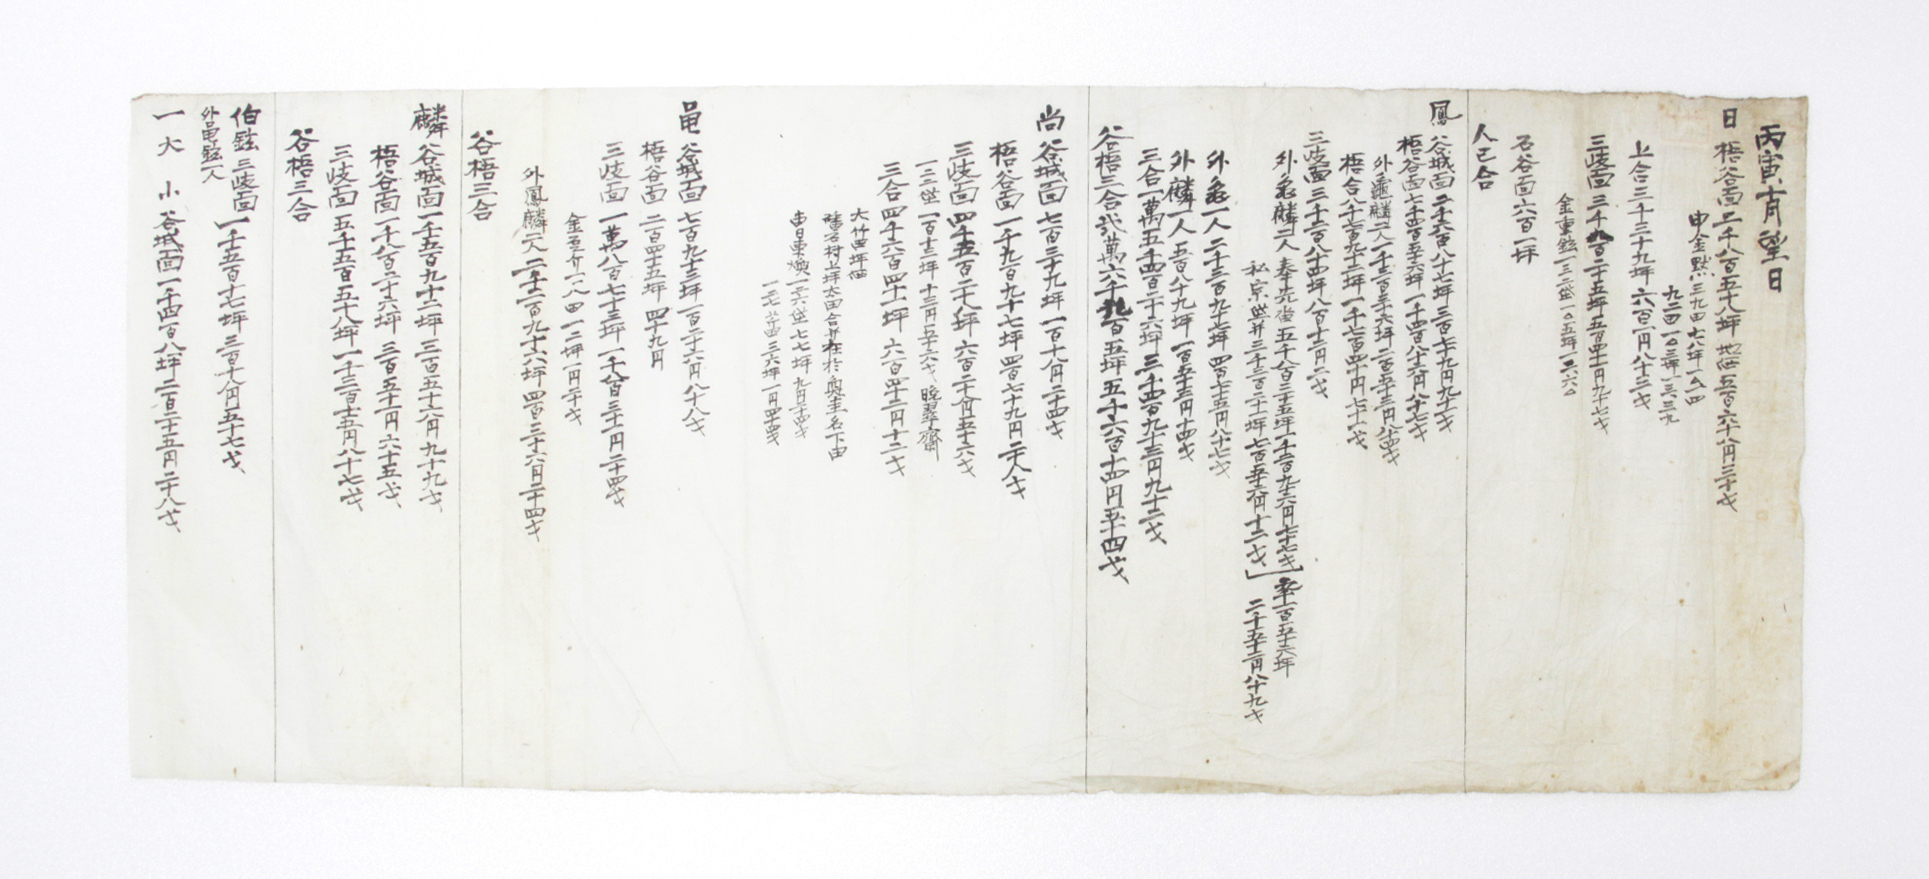 丙寅十一月望日
日 梧谷面二千八百五十八坪 地価五百六十八円三十戈
申金黙 三九四 七八坪 一八四
九二四 一〇三坪 一三三九
上合三千三十九坪 六百一円八十二戈
三岐面 三千九百二十五坪 五百四十一円九十七戈
金重鉉 一三三垈 一〇五坪 一三六〇
石谷面六百一坪
人己合
鳳 谷城面二千六百八十七坪 三百七十九円九十一戈
梧谷面七千四百五十六坪 一千四百八十六円八十七戈
外龜麟二人 八千三百三十六坪 二百五十三円八十四戈
梧合八千七百九十二坪 一千七百四十円七十一戈
三岐面三千二百八十四坪 八百十三円二戈
外龜麟二人
私宗垈并三千三百二十一坪 七百五十六円十二戈
二千五十二円八十九戈
外龜一人 二千三百九十七坪 四百七十五円八十七戈
外麟一人 五百八十九坪 一百五十三円十四戈
三合一萬五千四百二十六坪 三千四百九十三円九十二戈
谷梧三合弐萬六千九百五坪 五千六百十四円五十四戈
尚 谷城面七百三十九坪 一百十八円二十四戈
梧谷面一千九百九十七坪 四百七十九円二十八戈
三岐面四千五百二十八坪 六百二十八円五十六戈
一二三垈 一百十二坪 十三円五十六戈 晩翠齋
三合四千六百四十一坪 六百四十二円十二戈
大竹田坪畓
磻石村上坪太田合并在於奥圭名下由
申日東煥 一三六垈 七七坪 九円二十四戈
一三七 七六四 三六坪 一円四十四戈
黽 谷城面 七百九十三坪 一百二十六円八十八戈
梧谷面 二百四十五坪 四十九円
三岐面 一萬八百七十三坪 一千八百三十一円二十四戈
外鳳麟二人 二千二百九十六坪 四百三十六円二十四戈
谷梧三合
麟 谷城面一千五百九十二坪 三百五十六円九十九戈
梧谷面一千八百二十六坪 三百五十一円六十五戈
三岐面 五千五百五十八坪 一千三百十五円八十七戈
谷梧三合
伯鉉 三岐面 一千五百十七坪 三百十八円五十七戈
外黽鉉二人
一大 小 谷城面 一千四百八坪 二百二十五円二十八戈